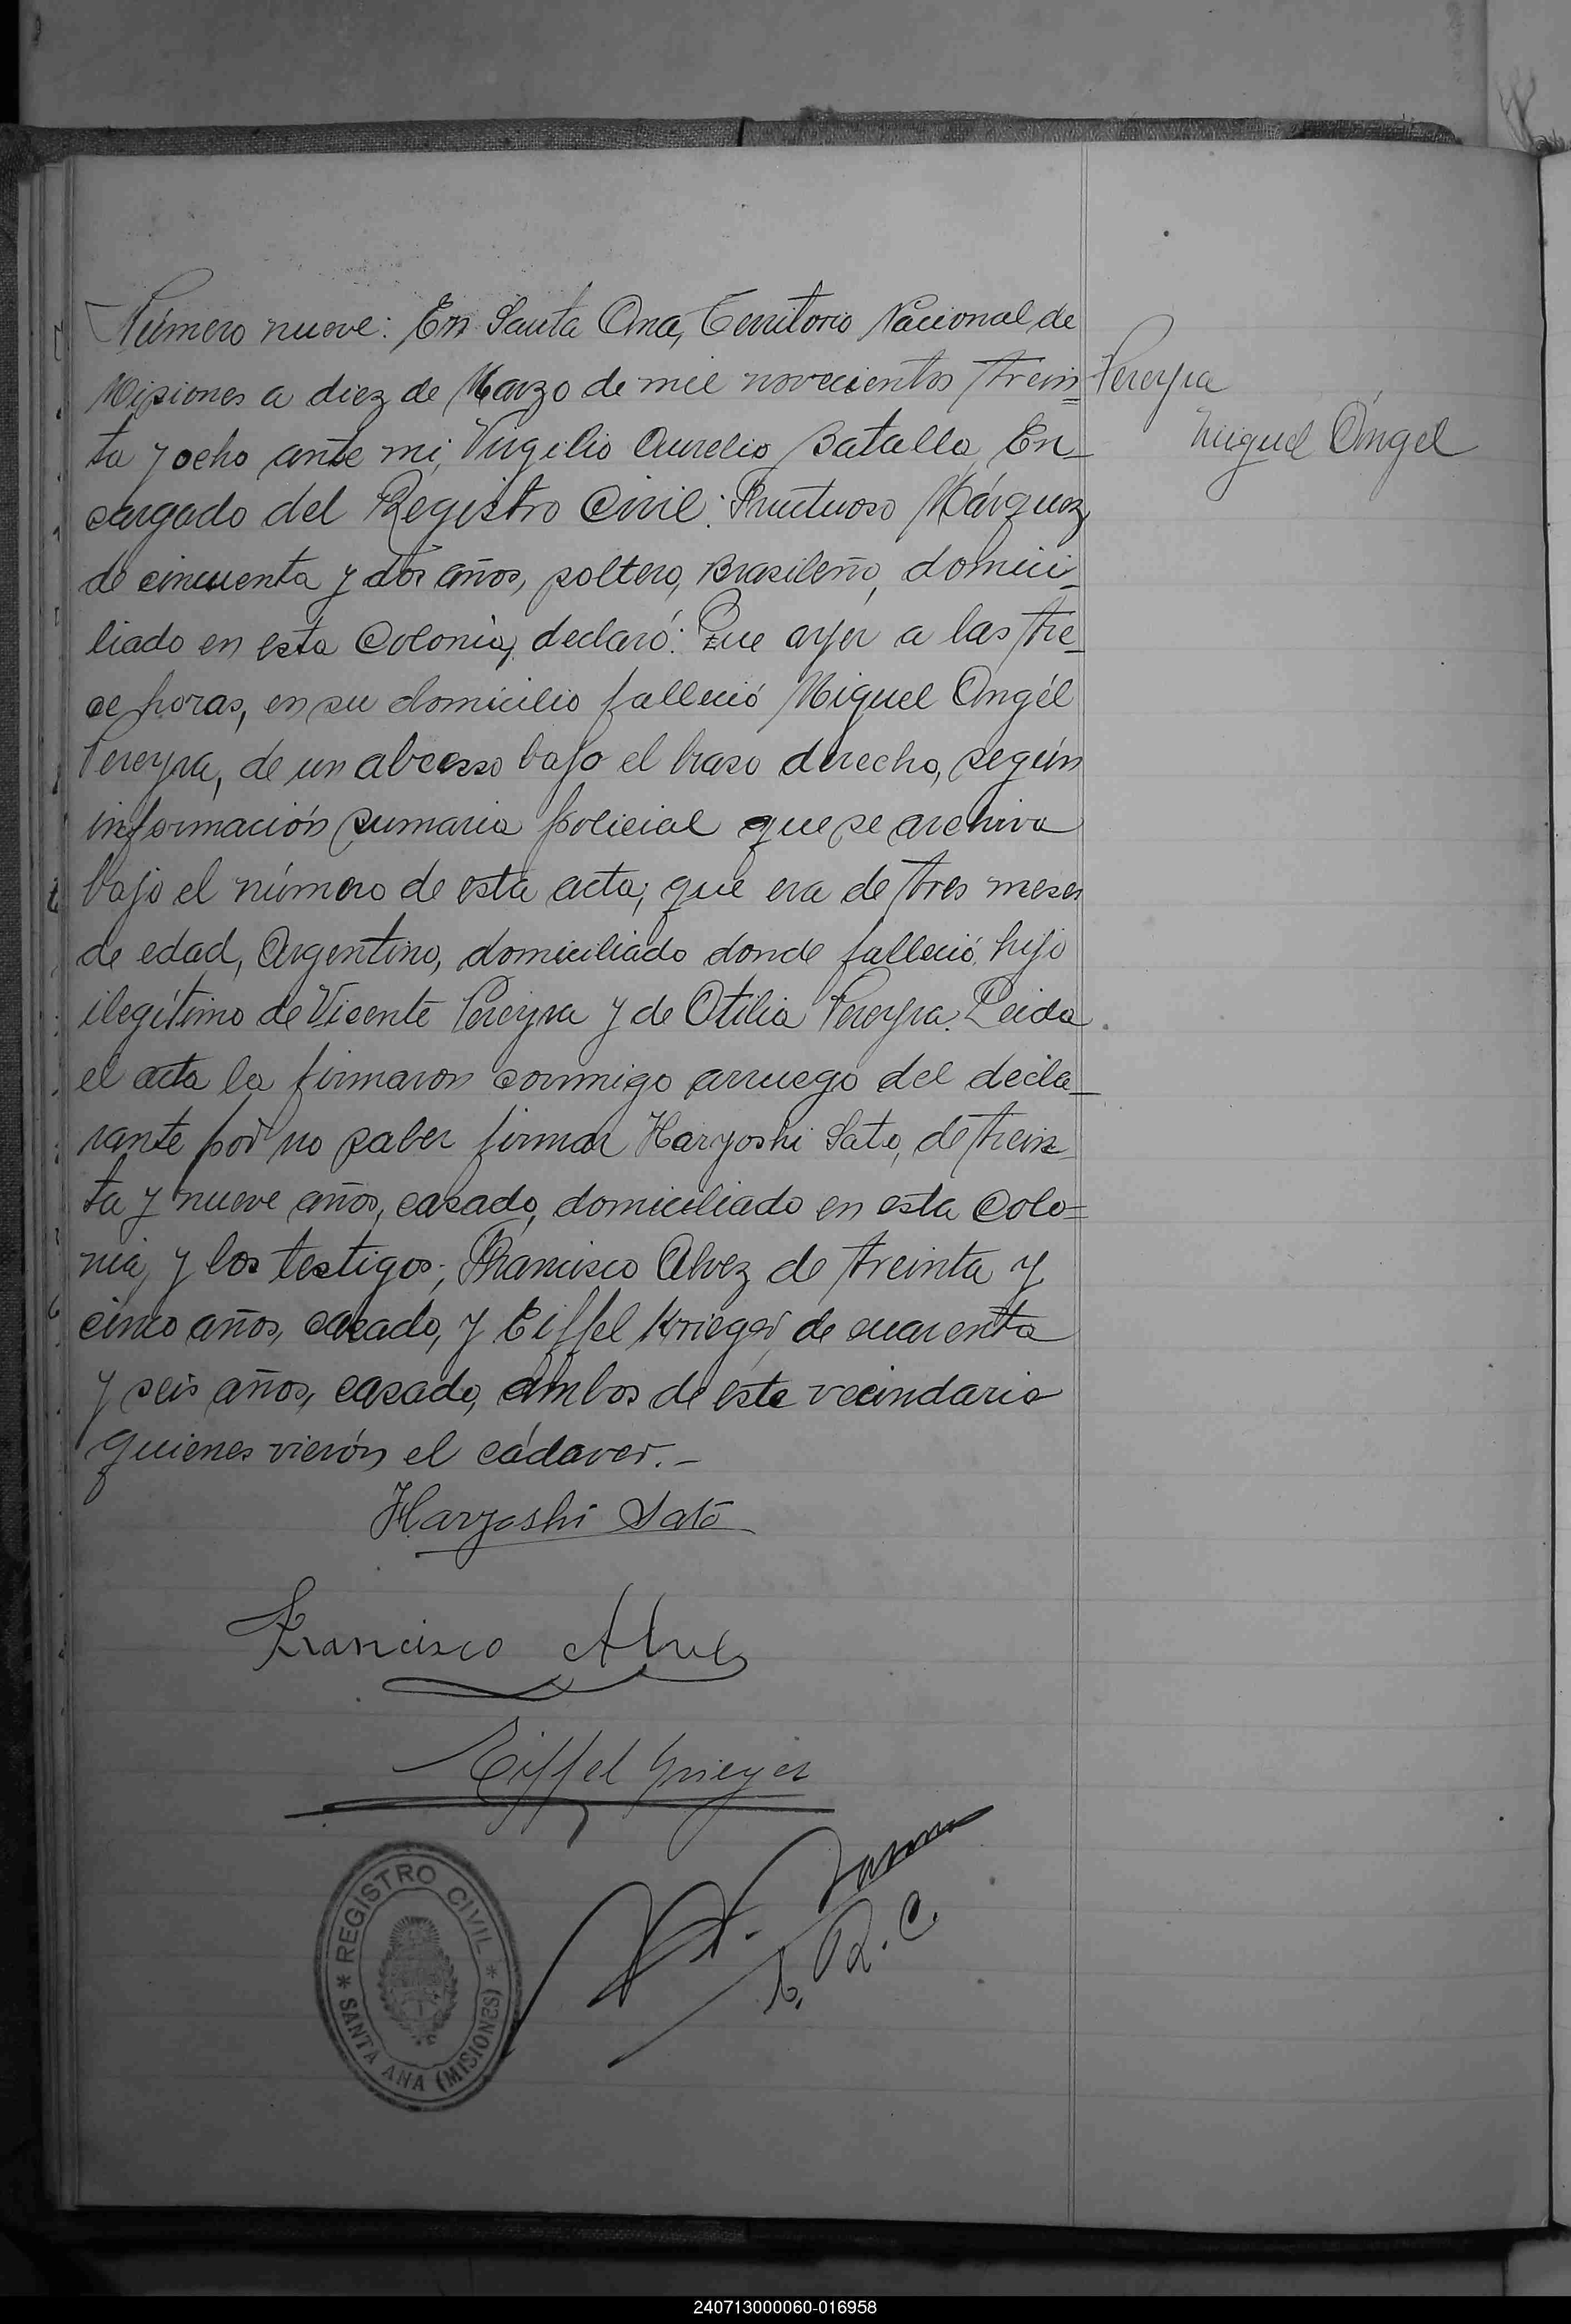 Número nueve: En Santa Ana, Territorio Nacional de
Misiones a diez de Marzo de mil novecientos trein=
ta y ocho ante mi, Virgilio Aurelio Batalla, En-
cargado del Registro Civil: Fructuoso Márquez,
de cincuenta y dos años, soltero, Brasileño, domici-
liado en esta Colonia, declaró: Que ayer a las tre-
ce horas, en su domicilio falleció Miguel Angél
Pereyra, de un abcesso bajo el braso derecho, según
información sumaria policial que se archiva
bajo el número de esta acta; que era de tres meses
de edad, Argentino, domiciliado donde falleció, hijo
ilegítimo de Vicente Pereyra y de Otilia Pereyra. Leida
el acta la firmaron conmigo arruego del decla-
rante por no saber firmar Haryoshi Sato, de trein-
ta y nueve años, casado, domiciliado en esta Colo=
nia, y los testigos; Francisco Alvez de treinta y
cinco años, casado, y Eiffel Krieger, de cuarenta
y seis años, casado, ambos de este vecindario
quienes vierón el cádaver.-
Pereyra
Miguel Ángel
Haryoshi Sato
Francisco Alves
Eiffel Krieger
E. R. C.
* REGISTRO CIVIL *
SANTA ANA (MISIONES)
240713000060-016958